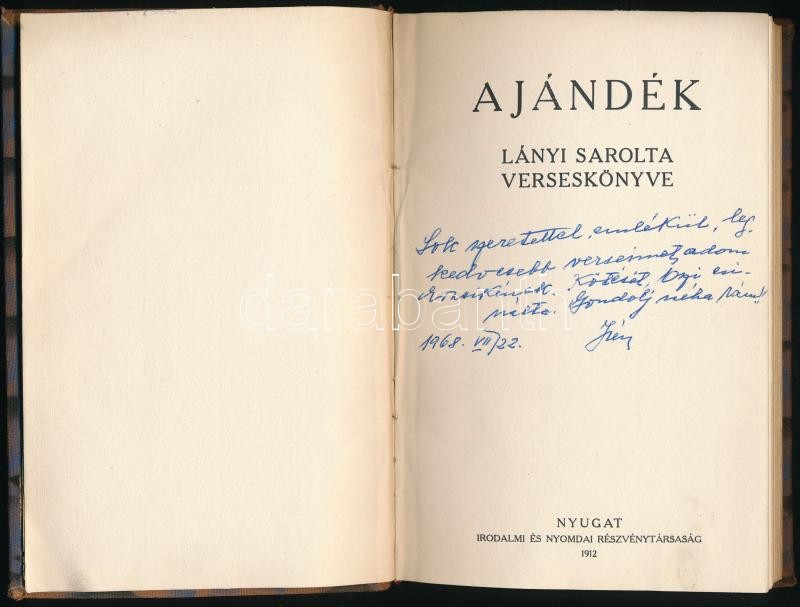 AJÁNDÉK
LÁNYI SAROLTA
VERSESKÖNYVE
Sok szeretettel, emlékül, leg-
kedvesebb verseimet adom
Rózsikének. Kötését, Ozi csi-
nálta. Gondolj néha rám!
1968. VII/22. Irén
darabanth
NYUGAT
IRODALMI ÉS NYOMDAI RÉSZVÉNYTÁRSASÁG
1912